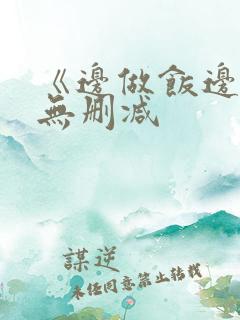 《邊做飯邊
無刪减
謀逆
未经同意禁止转载